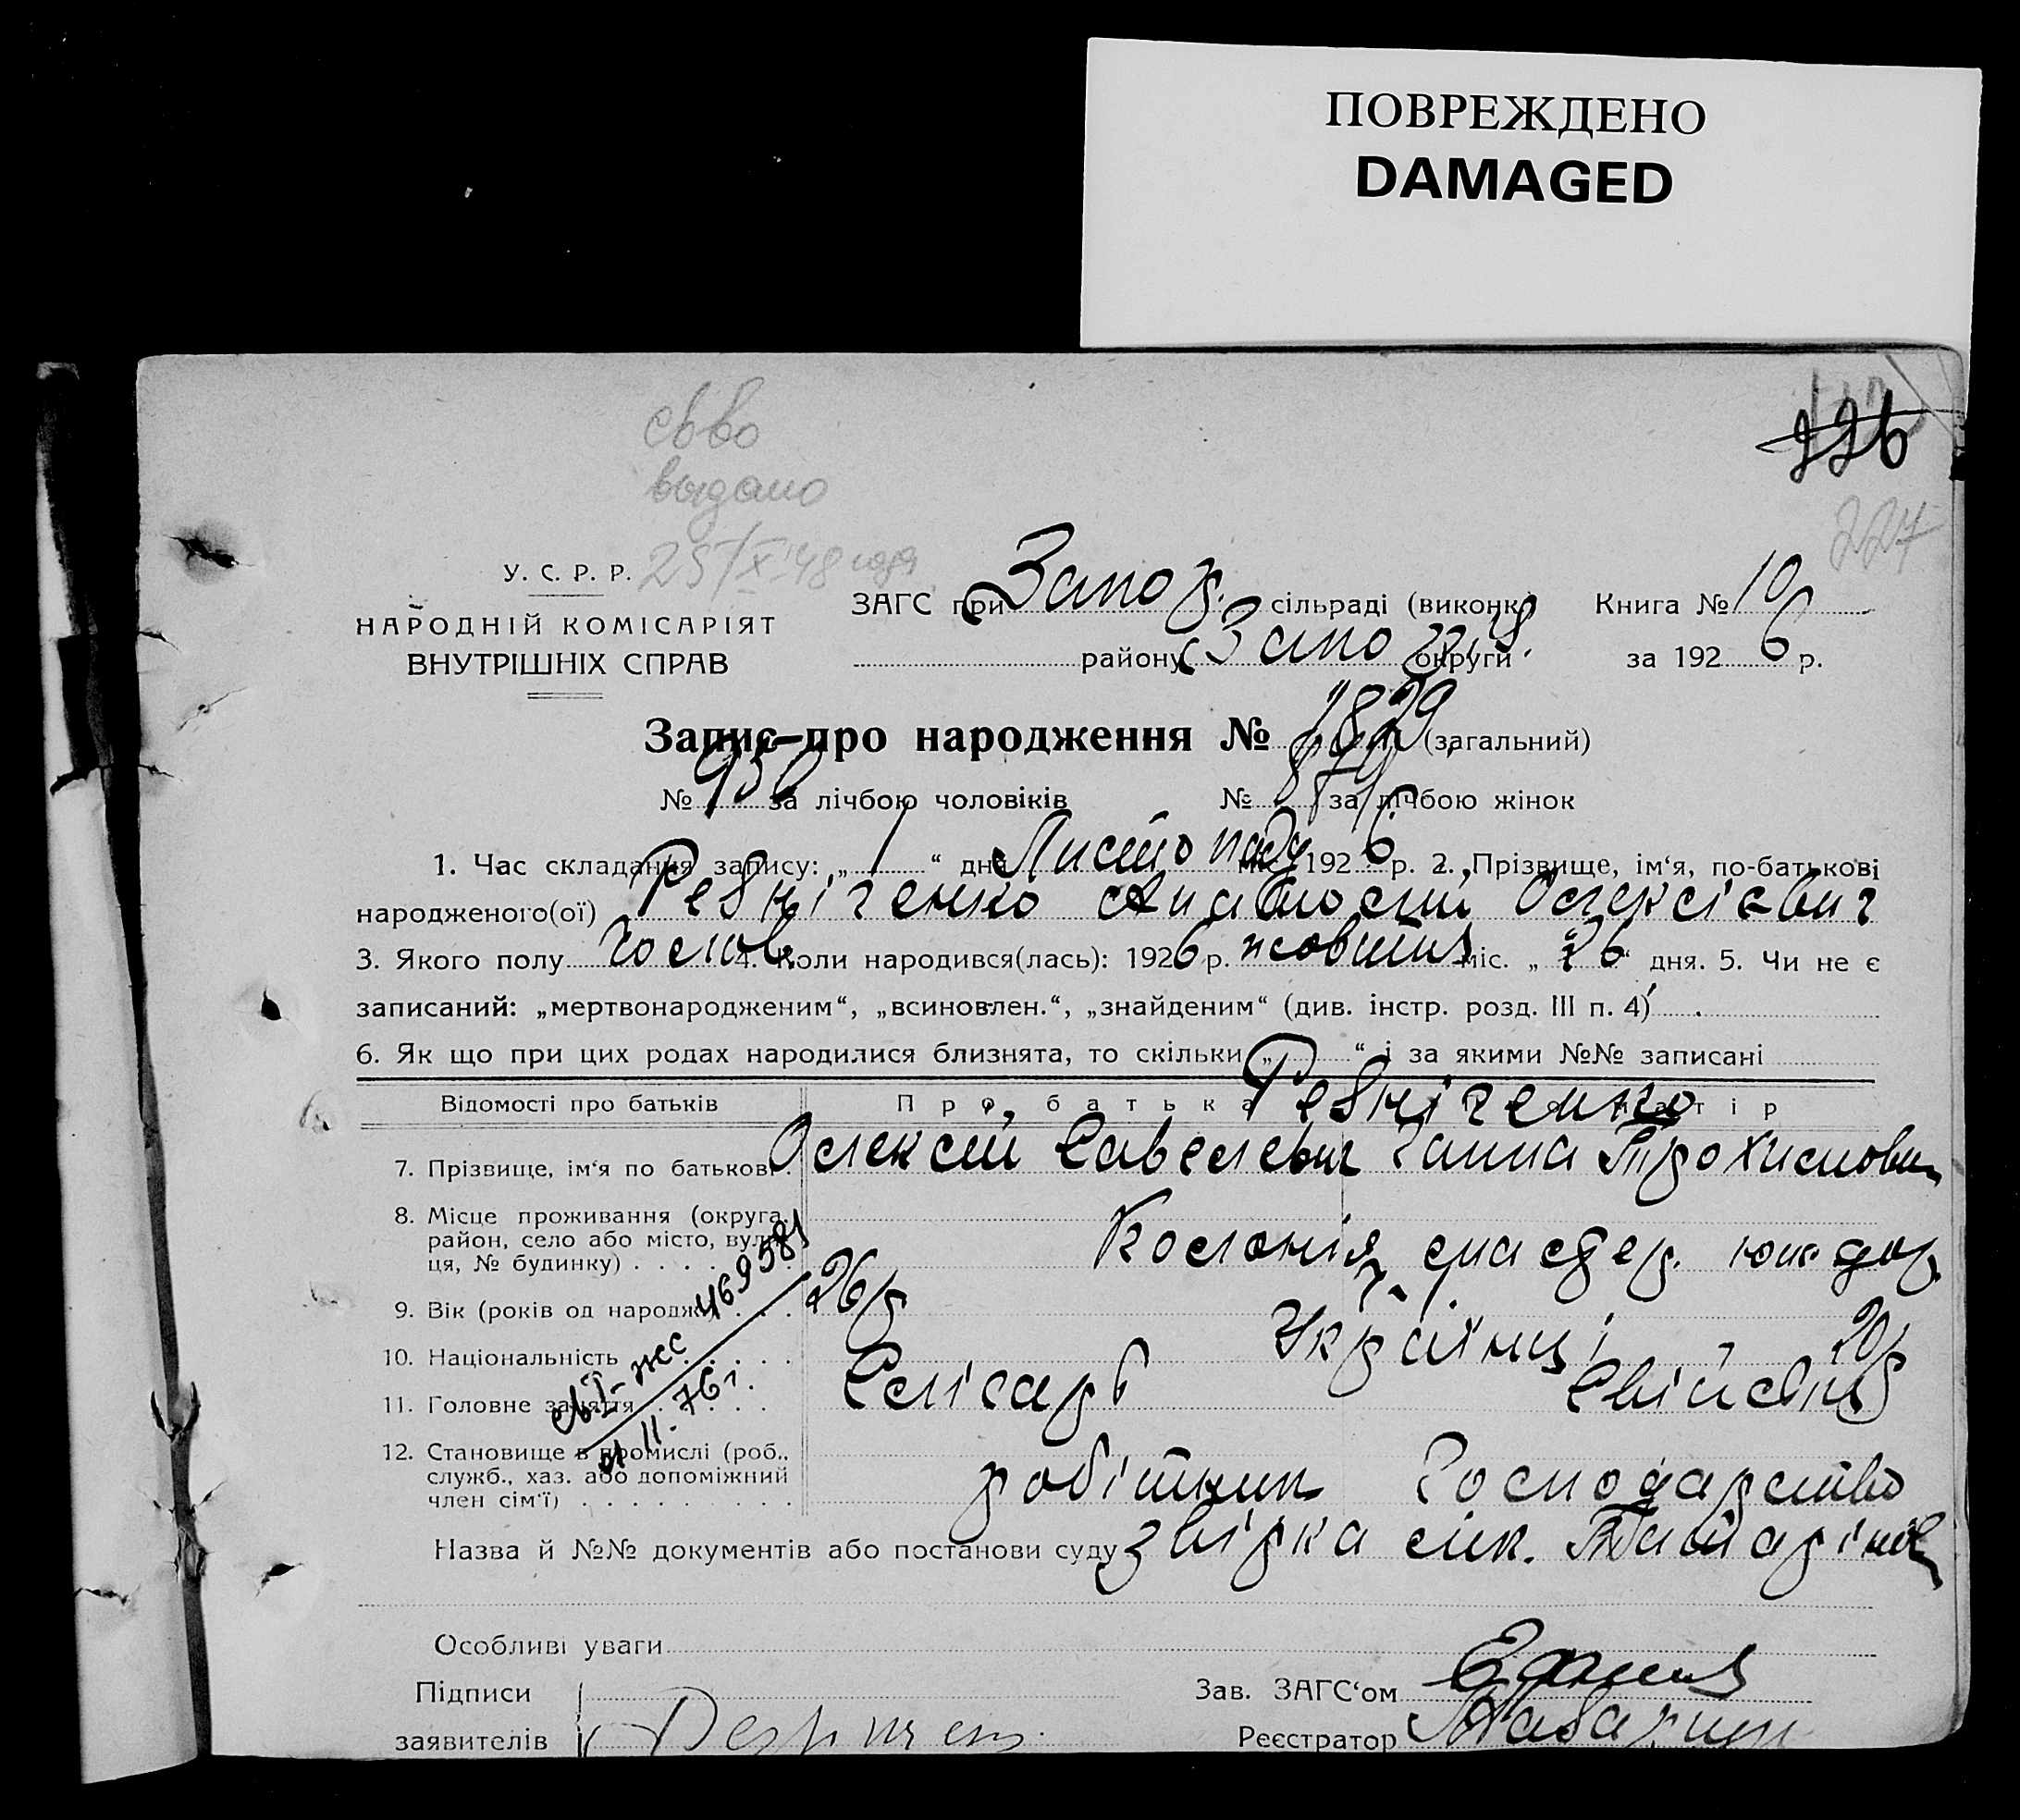 ПОВРЕЖДЕНО
DAMAGED
226
227
св во
выдано
25/X 48 года
У. С. Р. Р.
НАРОДНІЙ КОМІСАРІЯТ
ВНУТРІШНІХ СПРАВ
ЗАГС при Запор. сільраді (виконк)
Книга № 10
району Запо округи
за 1926 р.
Запис про народження № 1829 (загальний)
№ 950 за лічбою чоловіків № 879 за лічбою жінок
1. Час складання запису: „1“ дня Листопаду міс. 1926 р. 2. Прізвище, ім‘я, по-батькові
народженого(ої) Ревніченко Анатолій Олексієвич
3. Якого полу чолов. 4. Коли народився(лась): 1926 р. жовтня міс. „26“ дня. 5. Чи не є
записаний: „мертвонародженим“, „всиновлен.“, „знайденим“ (див. інстр. розд. III п. 4)
6. Як що при цих родах народилися близнята, то скільки „ “ і за якими №№ записані
Відомості про батьків Про батька Ревніченко матір
7. Прізвище, ім‘я по батькові Олексій Савелевич Ганна Трохимовн
8. Місце проживання (округа,
район, село або місто, вули-
ця, № будинку) Колонія
9. Вік (років од народж.) 26 р 20 р
10. Національність Українці
11. Головне заняття Слісарь
12. Становище в промислі (роб.,
служб., хаз. або допоміжний
член сім‘ї) робітник Господарство
св. І-жс 469581
11.76г.
Назва й №№ документів або постанови суду
Особливі уваги
Підписи
заявителів
Зав. ЗАГС‘ом
Реєстратор